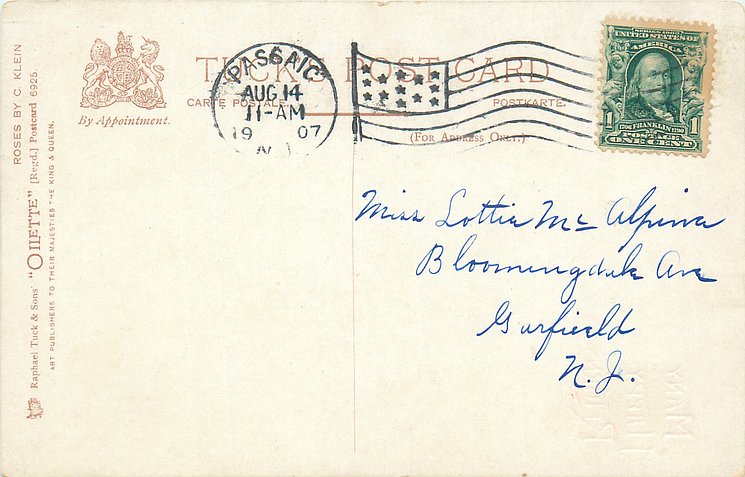 TUCK'S POST CARD
CARTE POSTALE.
POSTKARTE.
(FOR ADDRESS ONLY.)
By Appointment.
PASSAIC
AUG 14
11-AM
1907
N.J.
SERIES 1902
UNITED STATES OF
AMERICA
1706 FRANKLIN 1790
POSTAGE
1 ONE CENT 1
Miss Lottie Mc Alpine
Bloomingdale Ave
Garfield
N. J.
ROSES BY C. KLEIN
Raphael Tuck & Sons' "OILETTE" [Regd.] Postcard 6925.
ART PUBLISHERS TO THEIR MAJESTIES THE KING & QUEEN.